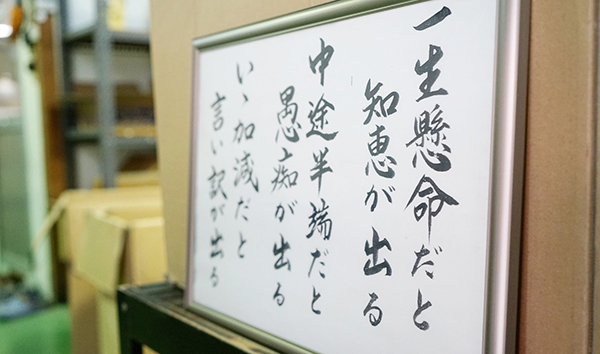 一生懸命だと
知恵が出る
中途半端だと
愚痴が出る
いゝ加減だと
言い訳が出る